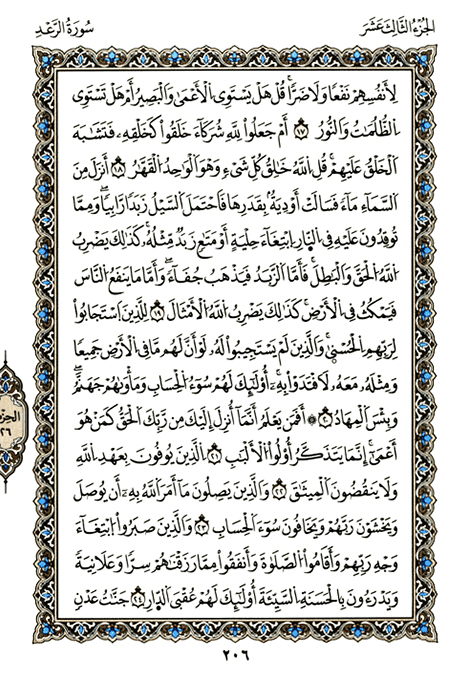 الجُزْءُ الثَّالِثَ عَشَرَ
سُورَةُ الرَّعْدِ
لِأَنفُسِهِمْ نَفْعًا وَلَا ضَرًّا ۚ قُلْ هَلْ يَسْتَوِى الْأَعْمَىٰ وَالْبَصِيرُ أَمْ هَلْ تَسْتَوِى
الظُّلُمَاتُ وَالنُّورُ ١٧ أَمْ جَعَلُوا لِلَّهِ شُرَكَاءَ خَلَقُوا كَخَلْقِهِ فَتَشَابَهَ
الْخَلْقُ عَلَيْهِمْ ۚ قُلِ اللَّهُ خَالِقُ كُلِّ شَىْءٍ وَهُوَ الْوَاحِدُ الْقَهَّارُ ١٨ أَنزَلَ مِنَ
السَّمَاءِ مَاءً فَسَالَتْ أَوْدِيَةٌ بِقَدَرِهَا فَاحْتَمَلَ السَّيْلُ زَبَدًا رَّابِيًا ۚ وَمِمَّا
تُوقِدُونَ عَلَيْهِ فِى النَّارِ ابْتِغَاءَ حِلْيَةٍ أَوْ مَتَاعٍ زَبَدٌ مِّثْلُهُ ۚ كَذَٰلِكَ يَضْرِبُ
اللَّهُ الْحَقَّ وَالْبَاطِلَ ۚ فَأَمَّا الزَّبَدُ فَيَذْهَبُ جُفَاءً ۖ وَأَمَّا مَا يَنفَعُ النَّاسَ
فَيَمْكُثُ فِى الْأَرْضِ ۚ كَذَٰلِكَ يَضْرِبُ اللَّهُ الْأَمْثَالَ ١٩ لِلَّذِينَ اسْتَجَابُوا
لِرَبِّهِمُ الْحُسْنَىٰ ۚ وَالَّذِينَ لَمْ يَسْتَجِيبُوا لَهُ لَوْ أَنَّ لَهُم مَّا فِى الْأَرْضِ جَمِيعًا
وَمِثْلَهُ مَعَهُ لَافْتَدَوْا بِهِ ۚ أُولَٰئِكَ لَهُمْ سُوءُ الْحِسَابِ وَمَأْوَاهُمْ جَهَنَّمُ ۖ
وَبِئْسَ الْمِهَادُ ٢٠ ۞ أَفَمَن يَعْلَمُ أَنَّمَا أُنزِلَ إِلَيْكَ مِن رَّبِّكَ الْحَقُّ كَمَنْ هُوَ
أَعْمَىٰ ۚ إِنَّمَا يَتَذَكَّرُ أُولُوا الْأَلْبَابِ ٢١ الَّذِينَ يُوفُونَ بِعَهْدِ اللَّهِ
وَلَا يَنقُضُونَ الْمِيثَاقَ ٢٢ وَالَّذِينَ يَصِلُونَ مَا أَمَرَ اللَّهُ بِهِ أَن يُوصَلَ
وَيَخْشَوْنَ رَبَّهُمْ وَيَخَافُونَ سُوءَ الْحِسَابِ ٢٣ وَالَّذِينَ صَبَرُوا ابْتِغَاءَ
وَجْهِ رَبِّهِمْ وَأَقَامُوا الصَّلَاةَ وَأَنفَقُوا مِمَّا رَزَقْنَاهُمْ سِرًّا وَعَلَانِيَةً
وَيَدْرَءُونَ بِالْحَسَنَةِ السَّيِّئَةَ أُولَٰئِكَ لَهُمْ عُقْبَى الدَّارِ ٢٤ جَنَّاتُ عَدْنٍ
٢٠٦